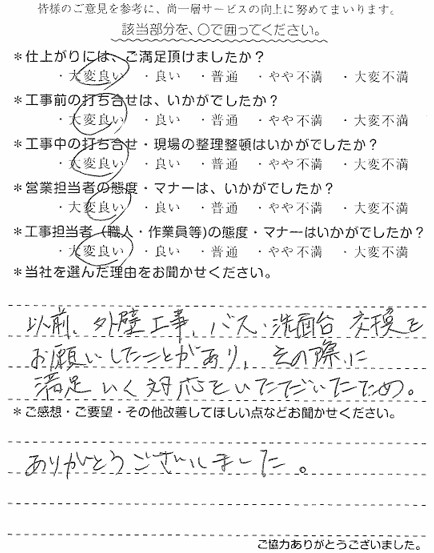 皆様のご意見を参考に、尚一層サービスの向上に努めてまいります。
該当部分を、○で囲ってください。
＊仕上がりには、ご満足頂けましたか？
・大変良い ・良い ・普通 ・やや不満 ・大変不満
＊工事前の打ち合せは、いかがでしたか？
・大変良い ・良い ・普通 ・やや不満 ・大変不満
＊工事中の打ち合せ・現場の整理整頓はいかがでしたか？
・大変良い ・良い ・普通 ・やや不満 ・大変不満
＊営業担当者の態度・マナーは、いかがでしたか？
・大変良い ・良い ・普通 ・やや不満 ・大変不満
＊工事担当者（職人・作業員等)の態度・マナーはいかがでしたか？
・大変良い ・良い ・普通 ・やや不満 ・大変不満
＊当社を選んだ理由をお聞かせください。
以前、外壁工事、バス・洗面台 交換を
お願いしたことがあり、その際に
満足いく対応をいただいたため。
＊ご感想・ご要望・その他改善してほしい点などお聞かせください。
ありがとうございました。
ご協力ありがとうございました。